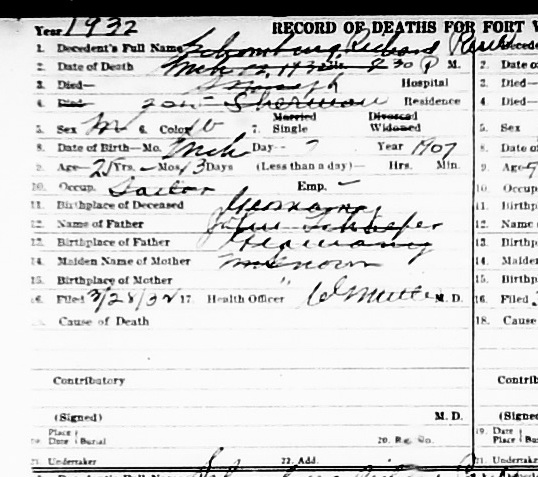 Year 1932 RECORD OF DEATHS FOR FORT
1. Decedent's Full Name Schomburg, Richard
2. Date of Death Mch 1932 30 P M.
3. Died— St Joseph Hospital
4. Died— Sherman Residence
5. Sex M 6. Color W 7. Married Single Divorced Widowed
8. Date of Birth—Mo. Mch Day— 7 Year 1907
9. Age— 25 Yrs. — Mos. 13 Days (Less than a day)— Hrs. Min.
10. Occup. Sailor Emp. —
11. Birthplace of Deceased Germany
12. Name of Father Schaefer
13. Birthplace of Father Germany
14. Maiden Name of Mother unknown
15. Birthplace of Mother "
16. Filed 3/28/32 17. Health Officer M. D.
Cause of Death
Contributory
(Signed) M. D.
19. Place Date Burial 20. Reg. No.
21. Undertaker 22. Add.
2. Date of
3. Died—
4. Died—
5. Sex
8. Date of
9. Age
10. Occup
11. Birthp
12. Name
13. Birthp
14. Maiden
15. Birthp
16. Filed
18. Cause
Contrib
(Signed
19. Date Place Bu
21. Undert